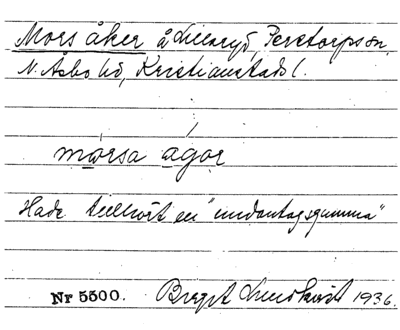 Mors åker å Lillaryd, Perstorps sn,
N. Åsbo hd, Kristianstads l.
mårsa ågor
Hade tillhört en "undantagsgumma"
Nr 5500. Birgit Lundkvist 1936.